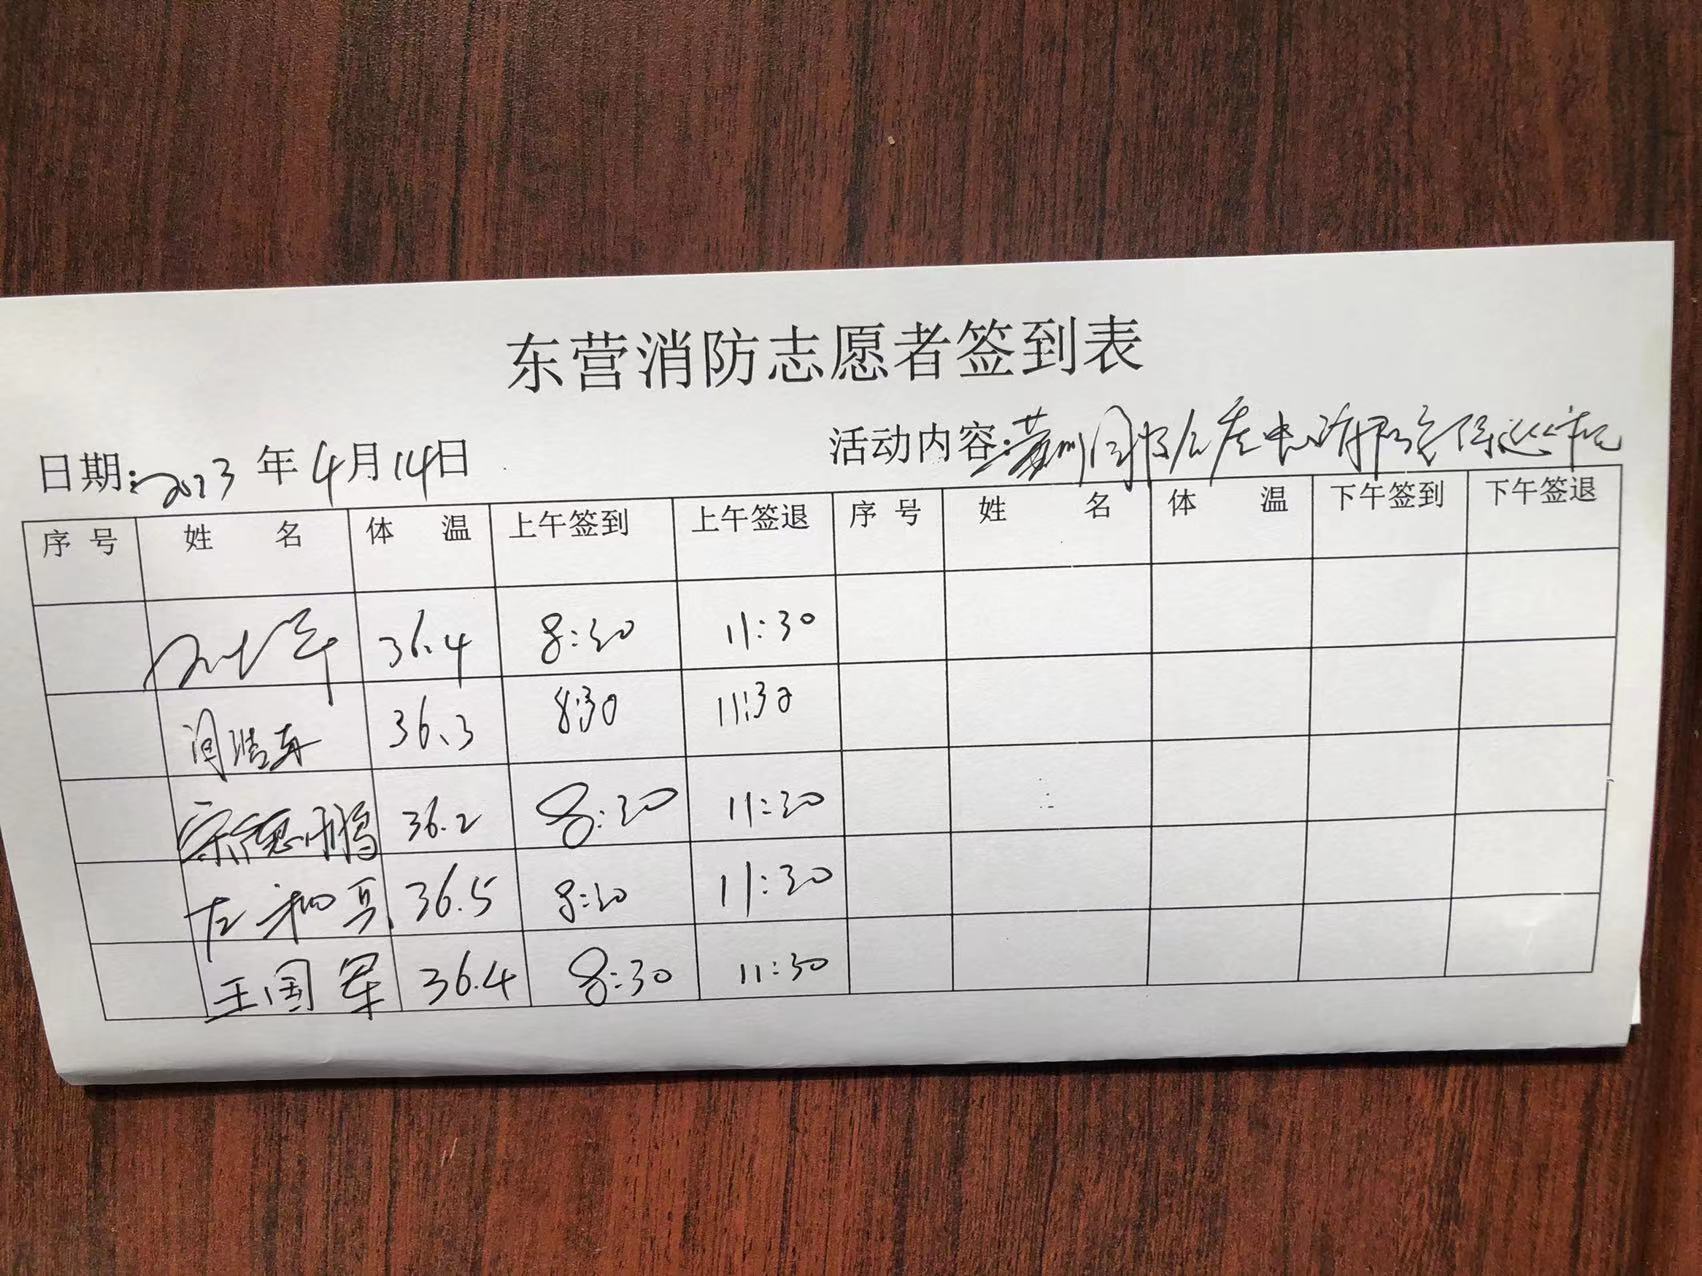 东营消防志愿者签到表
日期: 2023 年 4月 14日 活动内容:
序号 姓名 体温 上午签到 上午签退 序号 姓名 体温 下午签到 下午签退
36.4 8:30 11:30
闫浩 36.3 8:30 11:30
宋德鹏 36.2 8:30 11:30
左 36.5 8:30 11:30
王国军 36.4 8:30 11:30